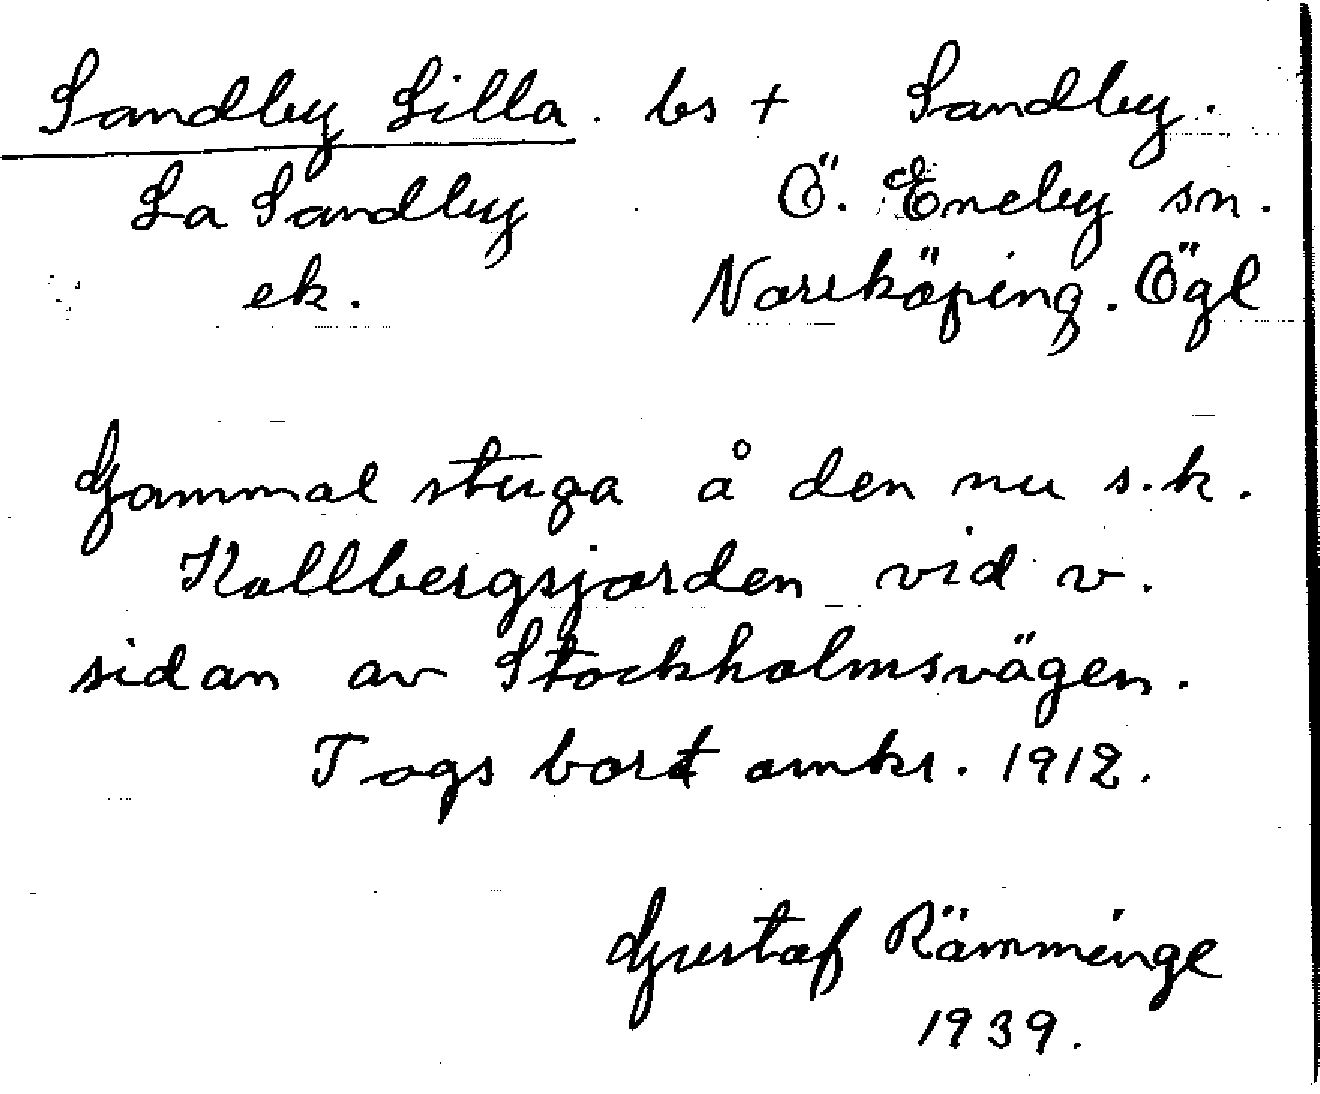 Sandby Lilla. bs + Sandby.
La Sandby Ö. Eneby sn.
ek. Norrköping. Ögl
Gammal stuga å den nu s.k.
Kallbergsjorden vid v.
sidan av Stockholmsvägen.
Togs bort omkr. 1912.
Gustaf Rämminge
1939.